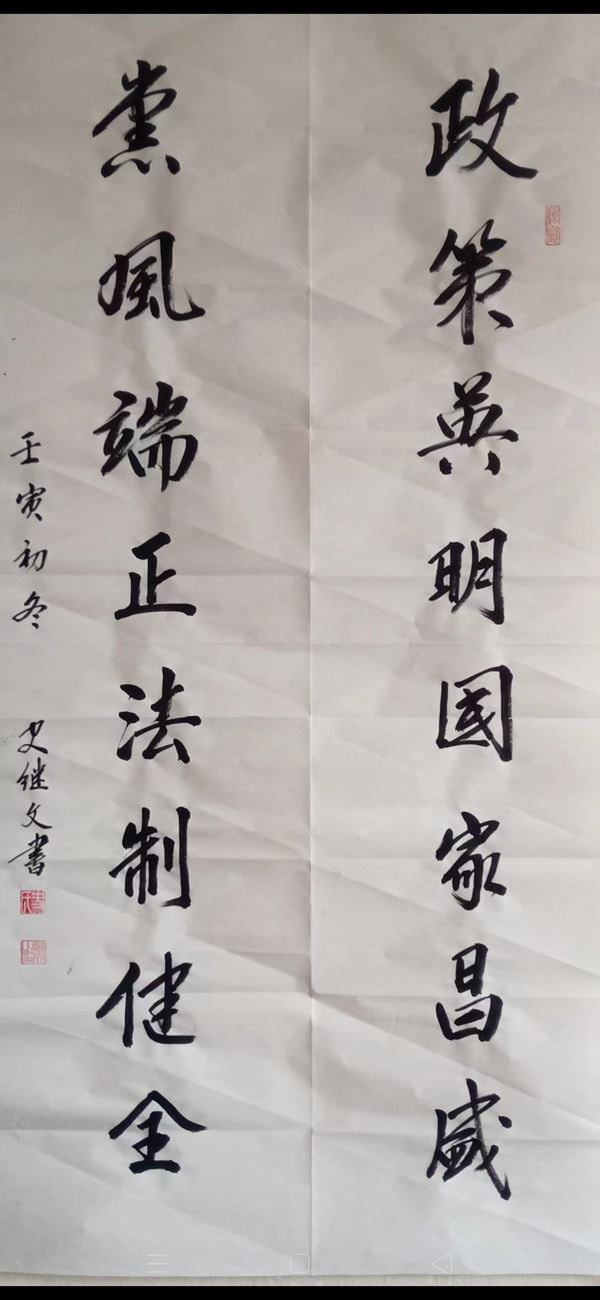 政策英明國家昌盛
黨風端正法制健全
壬寅初冬
史继文書